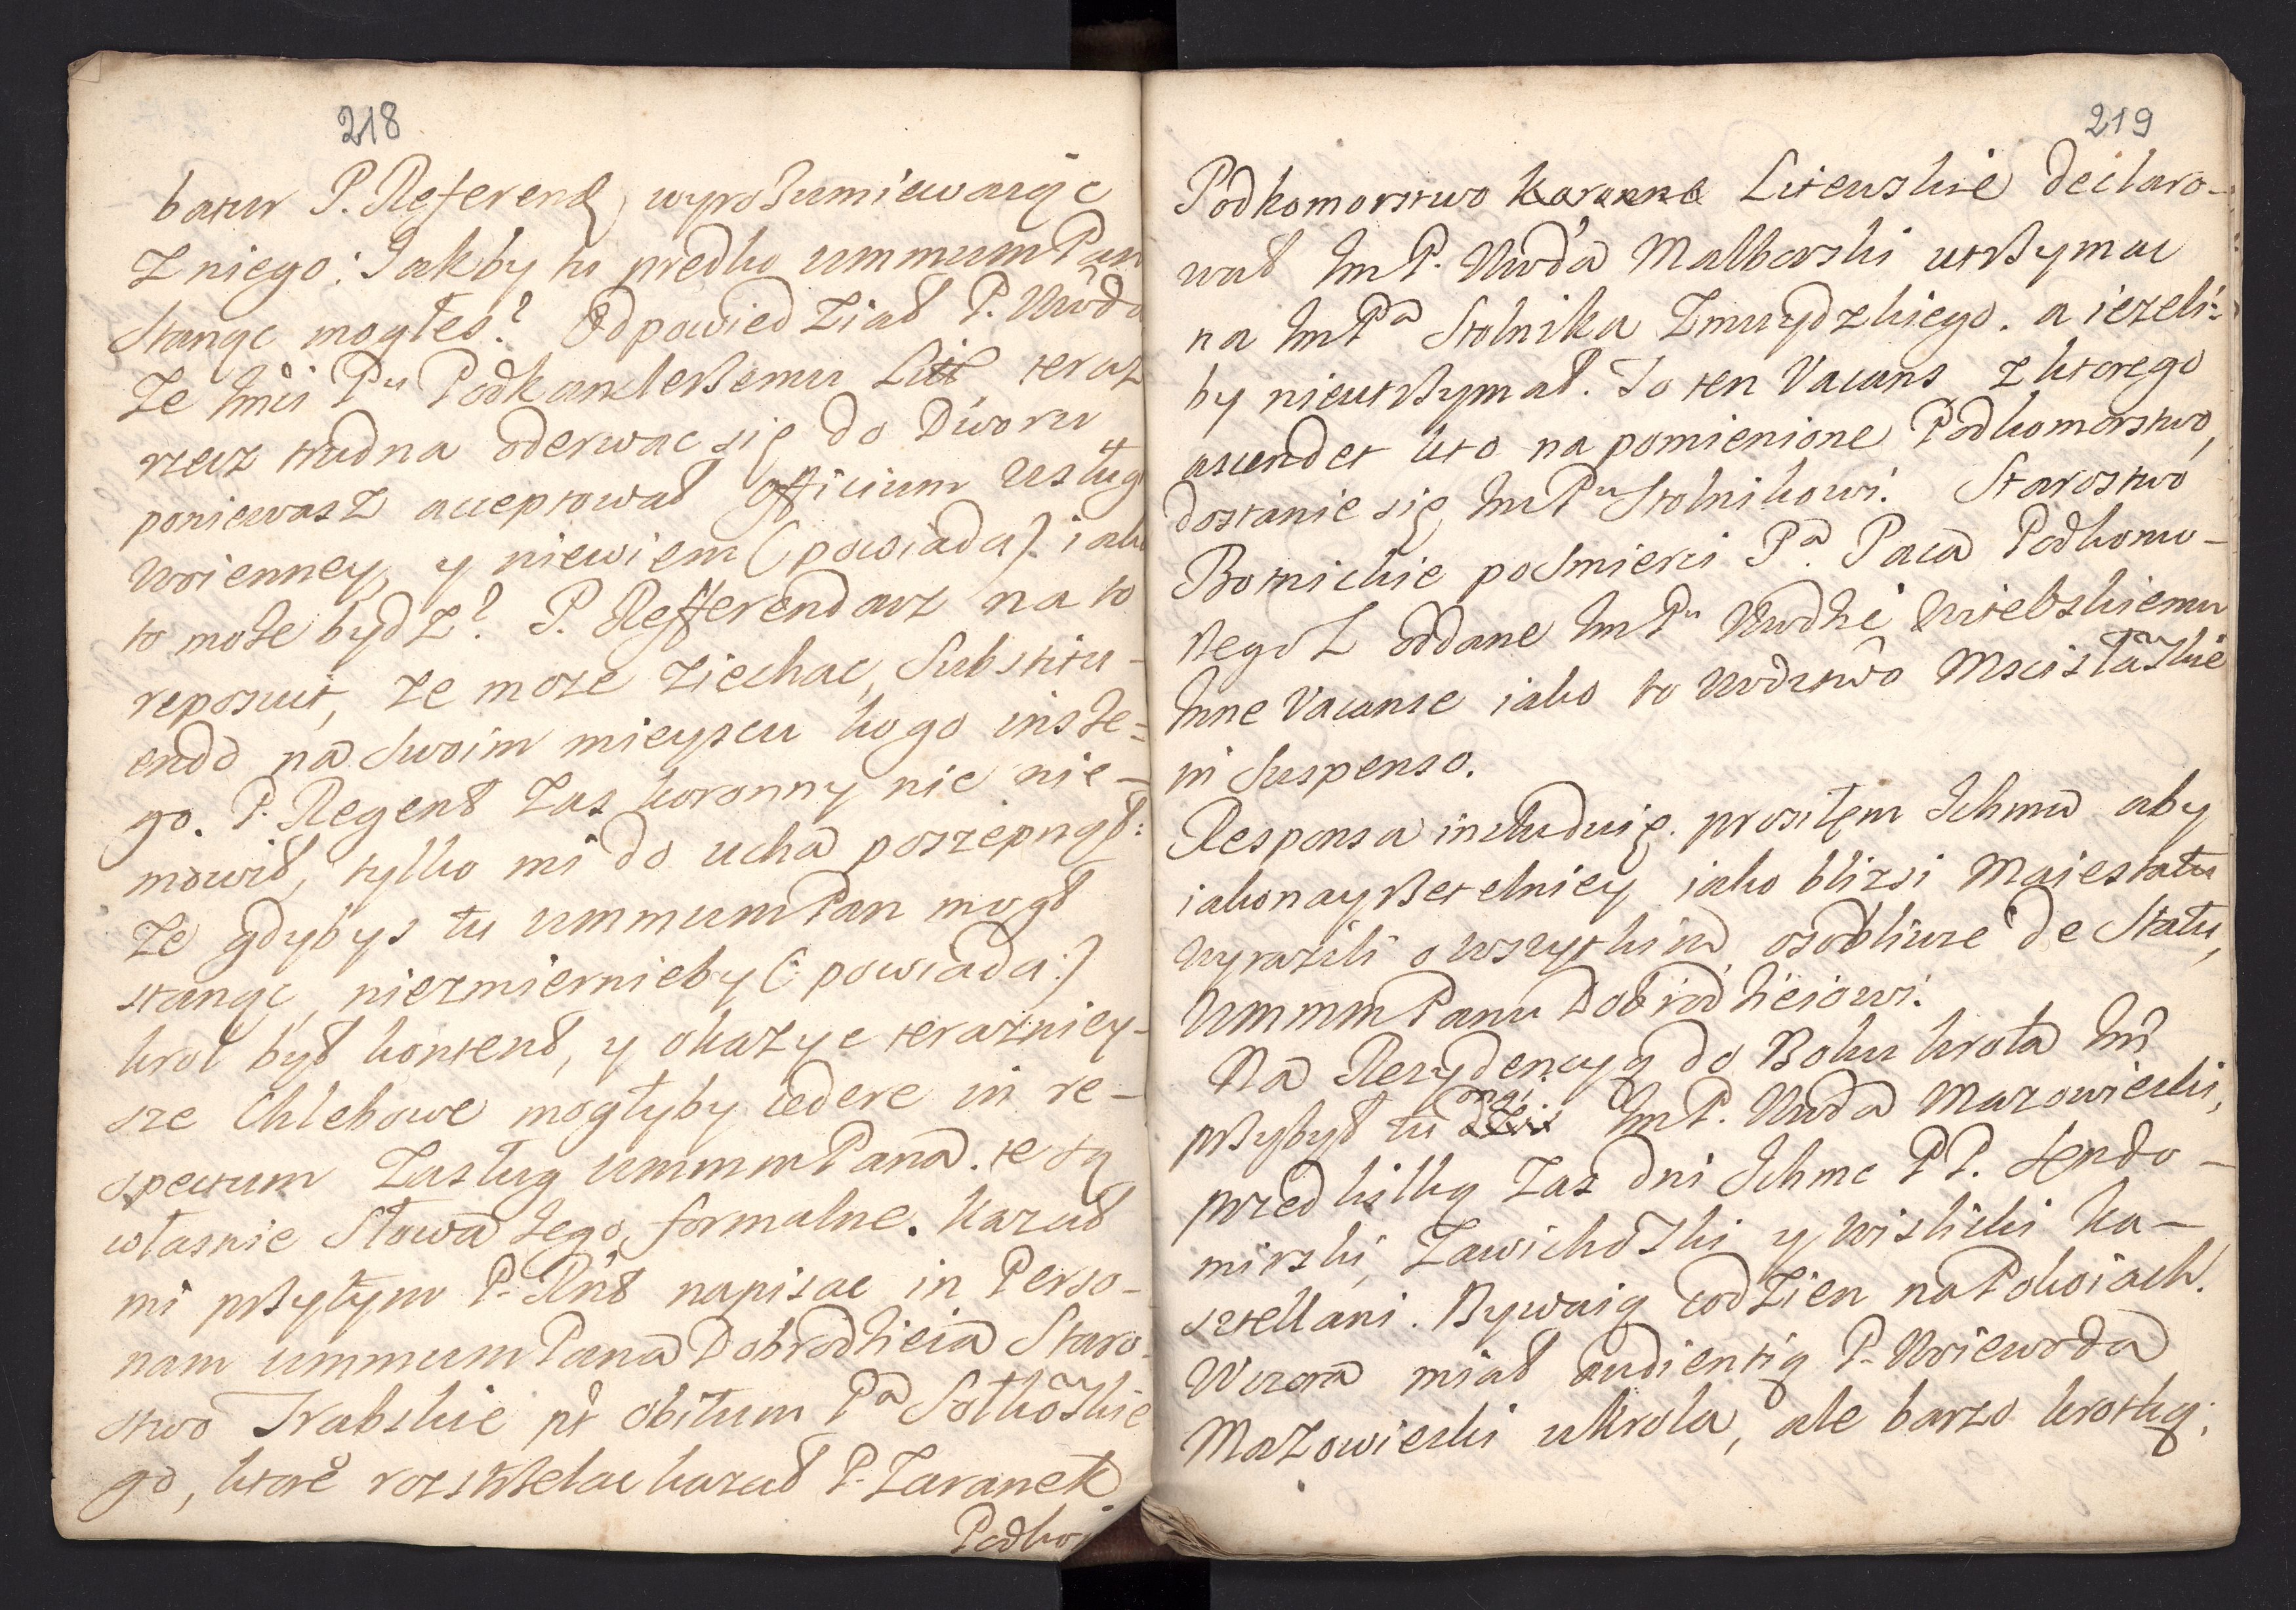 218
batur P. Referend, wyrozumiewaiąc
Z niego: Jakby to prędko UmmumPan
stanąc mogłes? Odpowiedział P. Wwda
Ze Jmci Pu Podkanclerzemu Litt teraz
rzecz trudna oderwac się do Dworu
poniewasz acceptował officium Usług
Woienney, y niewiem (powiada) iako
to moze bydz? P. Refferendarz na to
reposuit, ze moze ziechac, Substitu-
endo na Swoim mieyscu kogo insze-
go. P. Regent Zas koronny nic nie-
mowił, tylko mi do ucha poszepnął:
Ze gdybys tu UmmumPan mogł
stanąc, niezmiernieby (: powiada:)
krol był kontent, y okazye terazniey-
sze Chlebowe mogłyby cedere in re-
spectum Zasług UmmmPana. te są
własnie Słowa Jego formalne. Kazał
mi przytym P. Rnt napisac in Perso-
nam UmmumPana Dobrodzieia Staro-
stwo Trabskie pt obitum Pa Sołkoskie
go, ktore rozstrzelac kazał P. Zaranek
Podko
219
Podkomorstwo Koronne Litewskie declaro-
wał JmP. Wwda Malborski utrzymac
na JmPa Stolnika Zmuydzkiego. a iezeli-
by nieutrzymał. To ten Vacans z ktorego
ascendet kto na pomienione Podkomorstwo,
dostanie się JmPu Stolnikowi. Starostwo
Botnickie posmierci Pa. Paca Podkomo-
rzego L oddane JmPu Wwdzie Witebskiemu
Inne Vacanse iako to Wodztwo Mscisłaskie
in Suspenso.
Responsa includuię. prosiłem Ichmci aby
iakonayrzetelniey iako blizsi Maiestatu
wyrazili o wszytkim osobliwie de Statu,
UmmmPanu Dobrodzieiowi.
Na Rezydencyą do Boku krola Jm
przybył tu dzis JmP. Wwda Mazowiecki,
przed kilką Zas dni Ichmc PP. Sendo-
mirski, Zawichoski y Wislicki Ka-
sztellani. Bywaią codzien na Pokoiach.
Wczora miał audientią P. Woiewoda
Mazowiecki u Krola, ale barzo krotką: